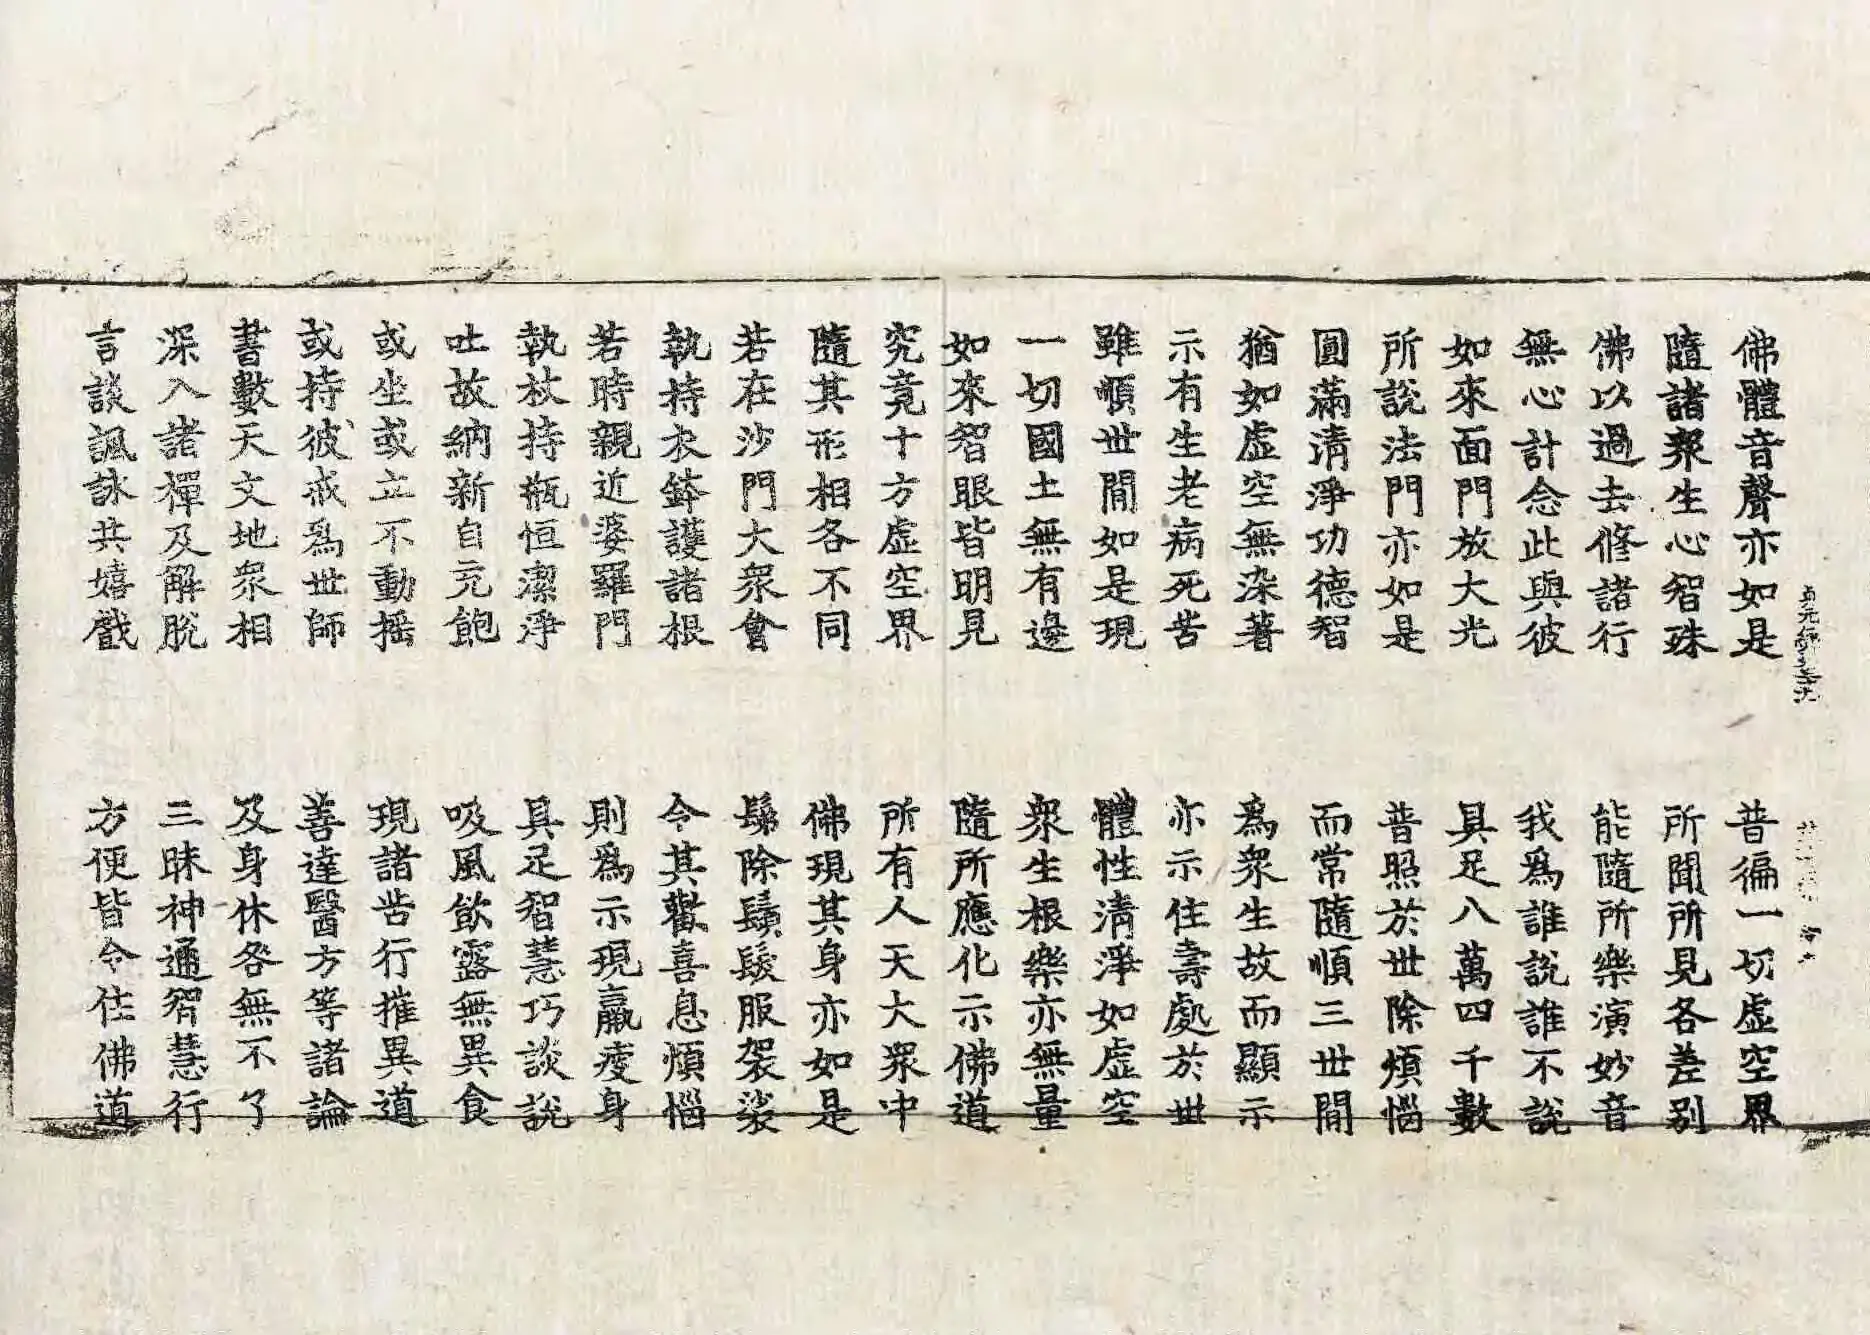 佛體音聲亦如是　普徧一切虛空界
隨諸衆生心智殊　所聞所見各差别
佛以過去修諸行　能隨所樂演妙音
無心計念此與彼　我爲誰說誰不說
如來面門放大光　具足八萬四千數
所說法門亦如是　普照於世除煩惱
圓滿淸淨功德智　而常隨順三世間
猶如虛空無染著　爲衆生故而顯示
示有生老病死苦　亦示住壽處於世
雖順世間如是現　體性淸淨如虛空
一切國土無有邊　衆生根樂亦無量
如來智眼皆明見　隨所應化示佛道
究竟十方虛空界　所有人天大衆中
隨其形相各不同　佛現其身亦如是
若在沙門大衆會　鬀除鬚髮服袈裟
執持衣鉢護諸根　令其歡喜息煩惱
若時親近婆羅門　則爲示現羸瘦身
執杖持瓶恒潔淨　具足智慧巧談說
吐故納新自充飽　吸風飮露無異食
或坐或立不動搖　現諸苦行摧異道
或持彼戒爲世師　善達醫方等諸論
書數天文地衆相　及身休咎無不了
深入諸禪及解脫　三昧神通智慧行
言談諷詠共嬉戲　方便皆令住佛道